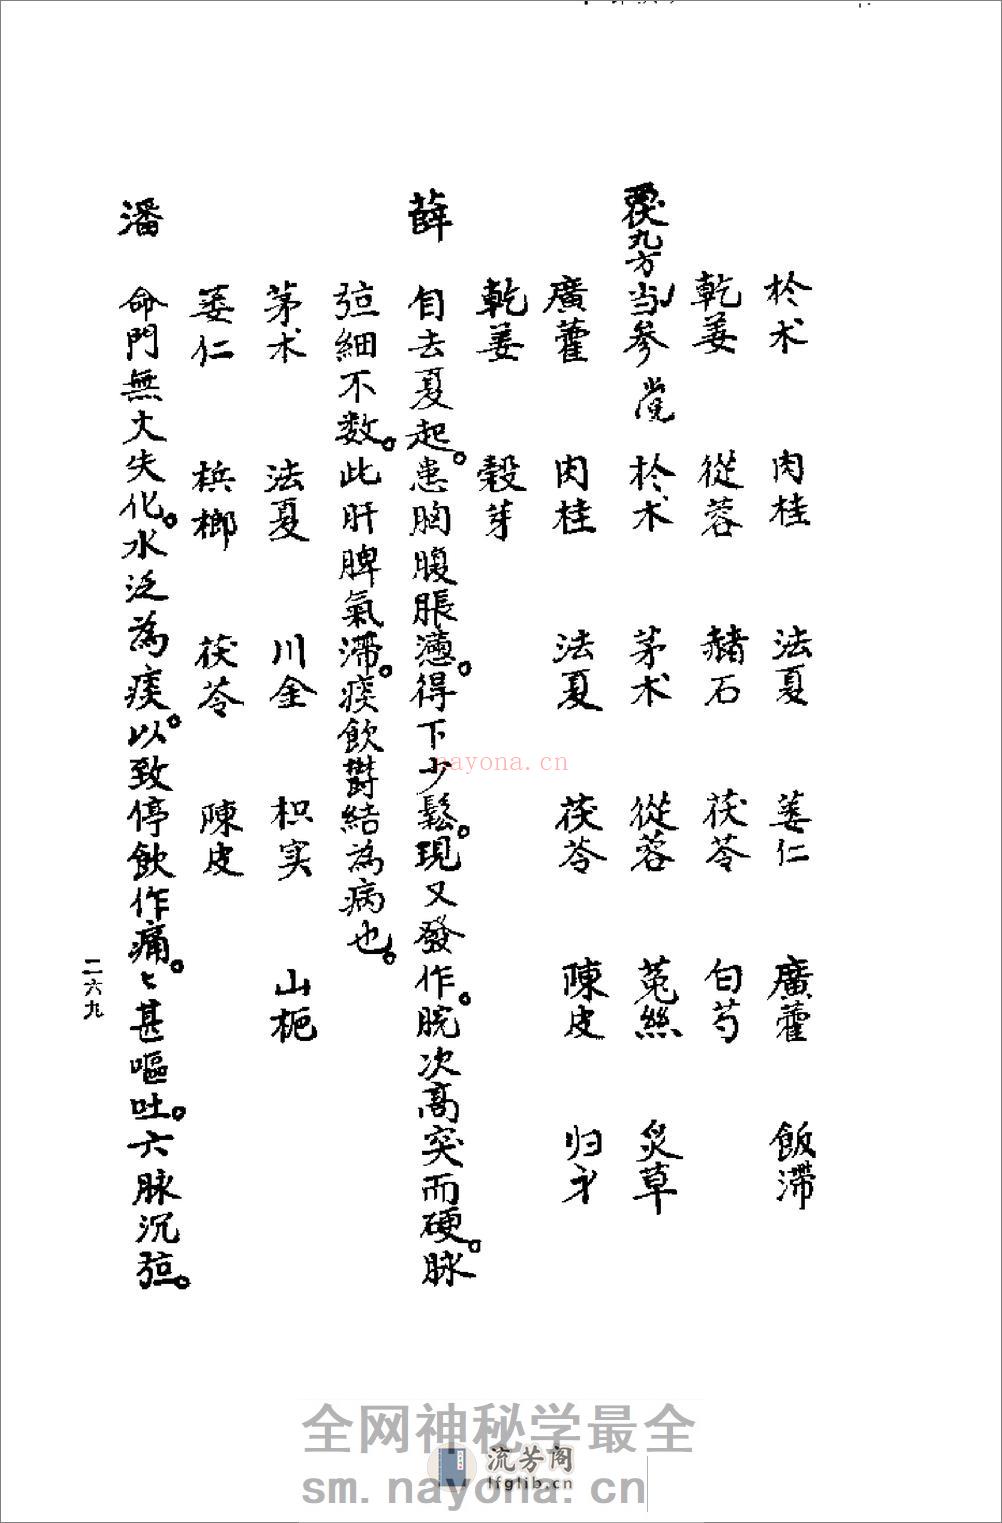 於术 肉桂 法夏 蒌仁 廣藿 飯滞
乾姜 從蓉 赭石 茯苓 白芍
丸方 当參 党 於术 茅术 從蓉 菟絲 炙草
廣藿 肉桂 法夏 茯苓 陳皮 归才
乾姜 穀芽
薛 自去夏起。患胸腹脹懑。得下少鬆。現又發作。脘次高突而硬。脉
弦細不数。此肝脾氣滞。痰飲鬱結為病也。
茅术 法夏 川金 枳实 山栀
蒌仁 梹榔 茯苓 陳皮
潘 命門無火失化。水泛為痰。以致停飲作痛。々甚嘔吐。六脉沉弦。
二六九
nayona.cn
全网神秘学最全
流芳阁
lfglib.cn
sm.nayona.cn